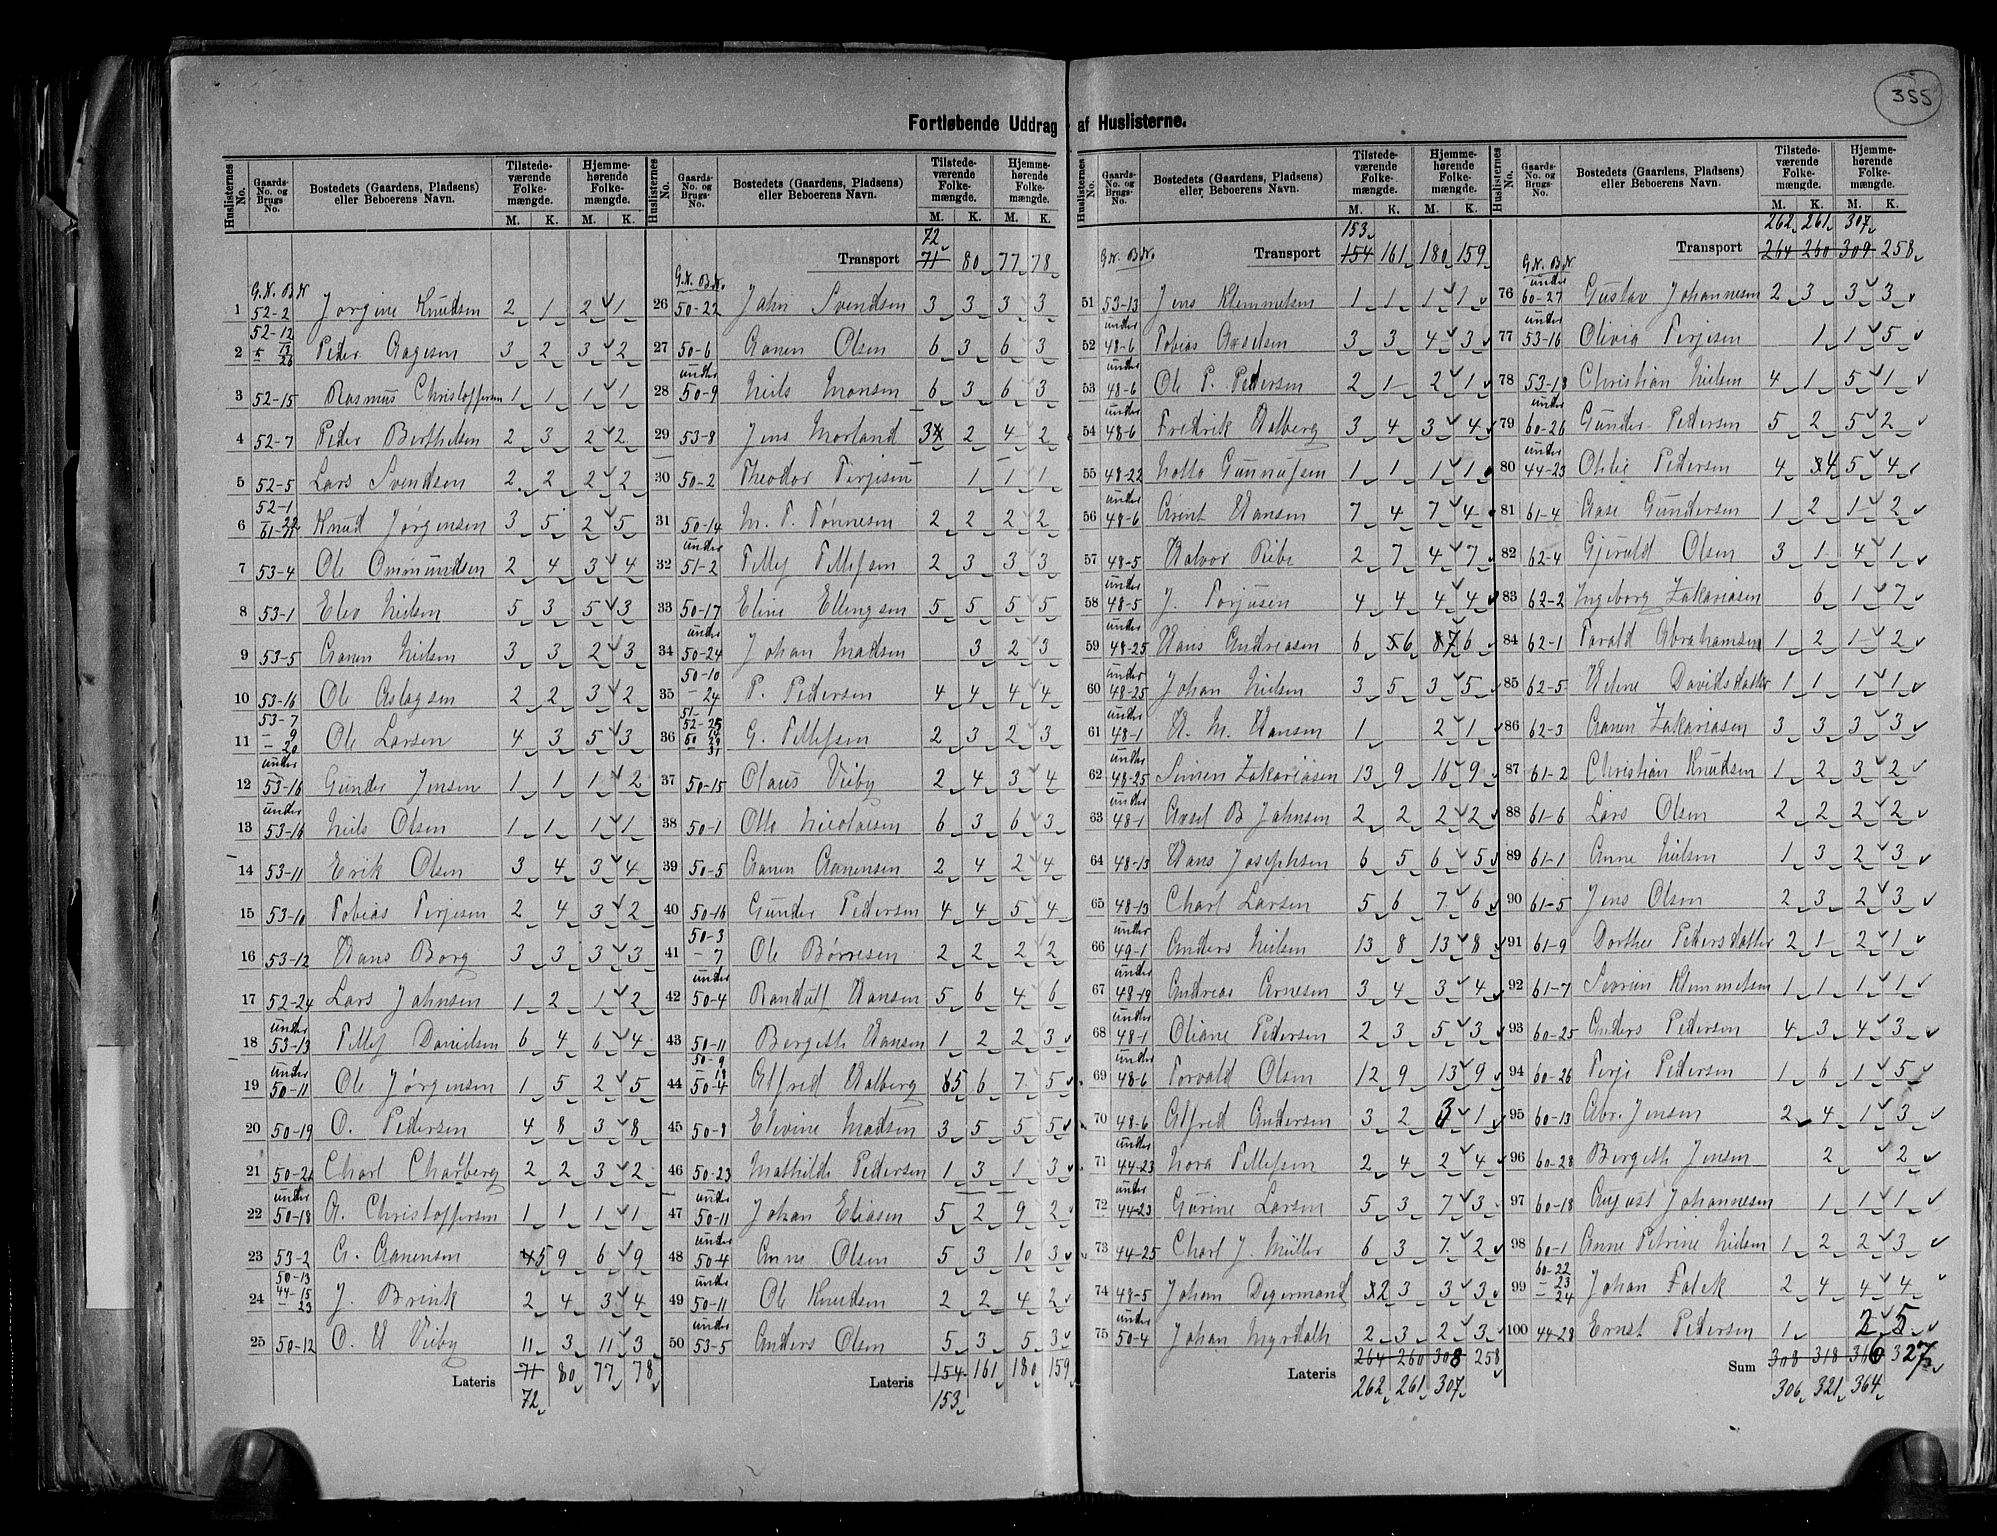 355
Fortløbende Uddrag af Huslisterne.
Huslisternes No. | Gaards-No. og Brugs-No. | Bostedets (Gaardens, Pladsens) eller Beboerens Navn. | Tilstedeværende Folkemængde. M. K. | Hjemmehørende Folkemængde. M. K.
G.N. B.N
1 52-2 Jorgine Knudsen 2 1 2 1
2 52-12 13 26 Peder Aagesen 3 2 3 2
3 52-15 Rasmus Christoffersen 1 1 1 1
4 52-7 Peder Berthelsen 2 3 2 2
5 52-5 Lars Svendsen 2 2 2 2
6 52-1 Knud Jørgensen 3 5 2 5
7 53-4 Ole Ommundsen 2 4 3 4
8 53-1 Elev Nielsen 5 3 5 3
9 53-5 Aanen Nielsen 3 3 2 3
10 53-16 Ole Aslagsen 2 2 3 2
11 53-7 - 9 - 20 Ole Larsen 4 3 5 3
12 under 53-16 Gunder Jensen 1 1 1 2
13 under 53-16 Niels Olsen 1 1 1 1
14 53-11 Erik Olsen 3 4 3 4
15 53-10 Tobias Terjesen 2 4 3 2
16 53-12 Hans Borg 3 3 3 3
17 52-24 Lars Johnsen 1 2 1 2
18 under 53-13 Tellef Danielsen 6 4 6 4
19 under 50-11 Ole Jørgensen 1 5 2 5
20 50-19 O. Pedersen 4 8 3 8
21 50-21 Charl Charberg 2 2 3 2
22 under 50-18 A. Christoffersen 1 1 1 1
23 53-2 A. Aanensen 5 9 6 9
24 50-13 44-15 - 23 J. Brink 2 4 3 4
25 50-12 O. H Vieby 11 3 11 3
Lateris 71 80 77 78
72
72
Transport 71 80 77 78
G.N. B.N.
26 50-22 John Svendsen 3 3 3 3
27 50-6 Aanen Olsen 6 3 6 3
28 under 50-9 Niels Monsen 6 3 6 3
29 53-8 Jens Morland 3 2 4 2
30 50-2 Theodor Terjesen 1 1 1
31 50-14 M. T. Tønnesen 2 2 2 2
32 under 51-2 Tellef Tellefsen 2 3 3 3
33 50-17 Eline Ellingsen 5 5 5 5
34 under 50-24 Johan Madsen 3 2 3
35 50-10 - 24 P. Pedersen 4 4 4 4
36 51-1 52-25 G. Tellefsen 2 3 2 3
37 50-15 Olaus Vieby 2 4 3 4
38 50-1 Otto Nicolaisen 6 3 6 3
39 50-5 Aanen Aanensen 2 4 2 4
40 50-16 Gunder Pedersen 4 4 5 4
41 50-3 - 7 Ole Børresen 2 2 2 2
42 under 50-4 Randulf Hansen 5 6 4 6
43 50-11 Bergeth Hansen 1 2 2 3
44 50-9 - 18 50-4 Alfred Halberg 5 6 7 5
45 50-8 Elevine Madsen 3 5 5 5
46 50-23 Mathilde Pedersen 1 3 1 3
47 under 50-11 Johan Eliasen 5 2 9 2
48 under 50-4 Anne Olsen 5 3 10 3
49 under 50-11 Ole Knudsen 2 2 4 2
50 under 53-5 Anders Olsen 5 3 5 3
Lateris 154 161 180 159
153
153
G.N. B.N. Transport 154 161 180 159
51 53-13 Jens Klemmetsen 1 1 1 1
52 under 48-6 Tobias Axelsen 3 3 4 3
53 under 48-6 Ole P. Pedersen 2 1 2 1
54 under 48-6 Fredrik Halberg 3 4 3 4
55 48-22 Notto Gunnufsen 1 1 1 1
56 under 48-6 Arent Hansen 7 4 7 4
57 48-5 Halvor Ribe 2 7 4 7
58 under 48-5 J. Torjusen 4 4 4 4
59 under 48-25 Hans Andreasen 6 6 7 6
60 under 48-25 Johan Nielsen 3 5 3 5
61 under 48-1 H. M. Hansen 1 2 1
62 under 48-25 Simen Zakariasen 13 9 16 9
63 under 48-1 Axel B Johnsen 2 2 2 2
64 48-13 Hans Josephsen 6 5 6 5
65 48-19 Charl Larsen 5 6 7 6
66 under 49-1 Anders Nielsen 13 8 13 8
67 under 48-19 Andreas Arnesen 3 4 3 4
68 under 48-1 Oliane Pedersen 2 3 5 3
69 under 48-6 Torvald Olsen 12 9 13 9
70 48-6 Alfred Andersen 3 2 3 1
71 under 44-23 Nora Tellefsen 2 4 2 4
72 under 44-23 Gurine Larsen 5 3 7 3
73 44-25 Charl J. Müller 6 3 7 2
74 48-5 Johan Degermand 2 3 3 3
75 under 50-4 Johan 2 3 2 3
Lateris 264 260 308 258
262 261 307
262 261 307
Transport 264 260 309 258
G.N. B.N
76 under 60-27 Gustav Johannesen 2 3 3 3
77 under 53-16 Olivia Terjesen 1 1 5
78 53-18 Christian Nielsen 4 1 5 1
79 under 60-26 Gunder Pedersen 5 2 5 2
80 44-23 Ohlie Pedersen 4 4 5 4
81 61-4 Aase Gundersen 1 2 1 2
82 62-4 Gjeruld Olsen 3 1 4 1
83 62-2 Ingeborg Zakariasen 6 1 7
84 62-1 Torald Abrahamsen 1 2 1 2
85 62-5 Helene Davidsdatter 1 1 1 1
86 62-3 Aanen Zakariasen 3 3 3 3
87 61-2 Christian Knudsen 1 2 3 2
88 61-6 Lars Olsen 2 2 2 2
89 61-1 Anne Nielsen 1 3 2 3
90 61-5 Jens Olsen 2 3 2 3
91 61-9 Dorthee Pedersdatter 2 1 2 1
92 61-7 Severin Klemmetsen 1 1 1 1
93 60-25 Anders Pedersen 4 3 4 3
94 60-26 Terje Pedersen 1 6 1 5
95 60-13 Abr. Jensen 2 4 1 3
96 60-28 Bergeth Jensen 2 2
97 60-18 August Johannesen 1 1 1
98 60-1 Anne Petrine Nielsen 1 2 2 3
99 60-22 - 23 - 24 Johan Falck 2 4 4 4
100 44-28 Ernst Pedersen 1 2 5
Sum 308 318 366 327
306 321 364